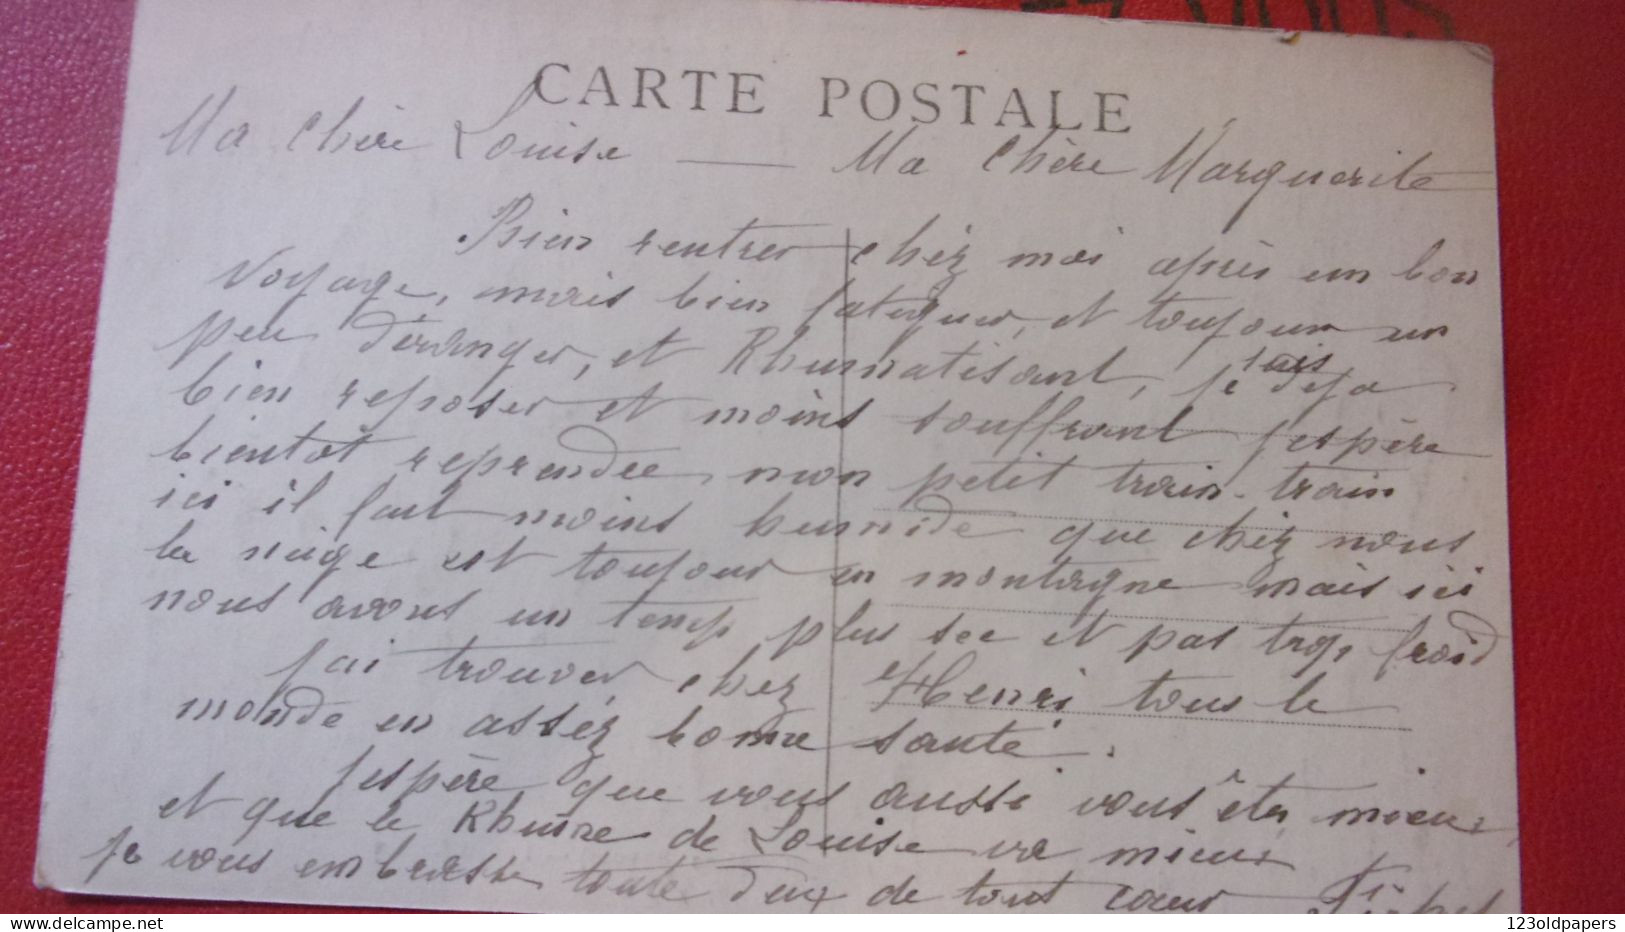 EZ VOUS
CARTE POSTALE
Ma Chère Louise — Ma Chère Marguerite
Bien rentrer chéz moi après un bon
voyage, mais bien fatiguer, et toujour un
peu déranger, et Rhumatisant, je sais déja
bien reposer et moins souffrant j'espère
bientôt reprendre mon petit train-train
ici il fait moins humide que chéz vous
la neige est toujour en montagne mais ici
nous avons un temp plus sec et pas trop froid
j'ai trouver chez Henri tous le
monde en asséz bonne santé.
j'espère que vous aussi vous êtes mieux
et que le Rhume de Louise va mieux
je vous embrasse toute deux de tout cœur
123oldpapers